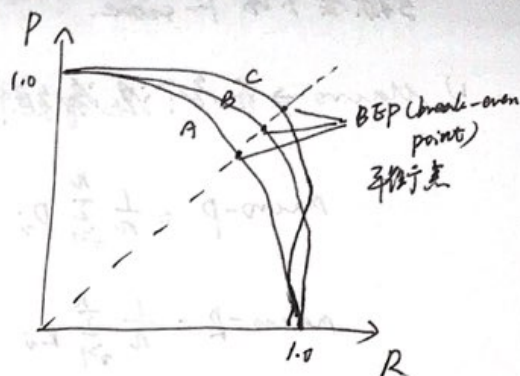 P
1.0
C
B
A
BEP (break-even
point)
平衡点
1.0
R